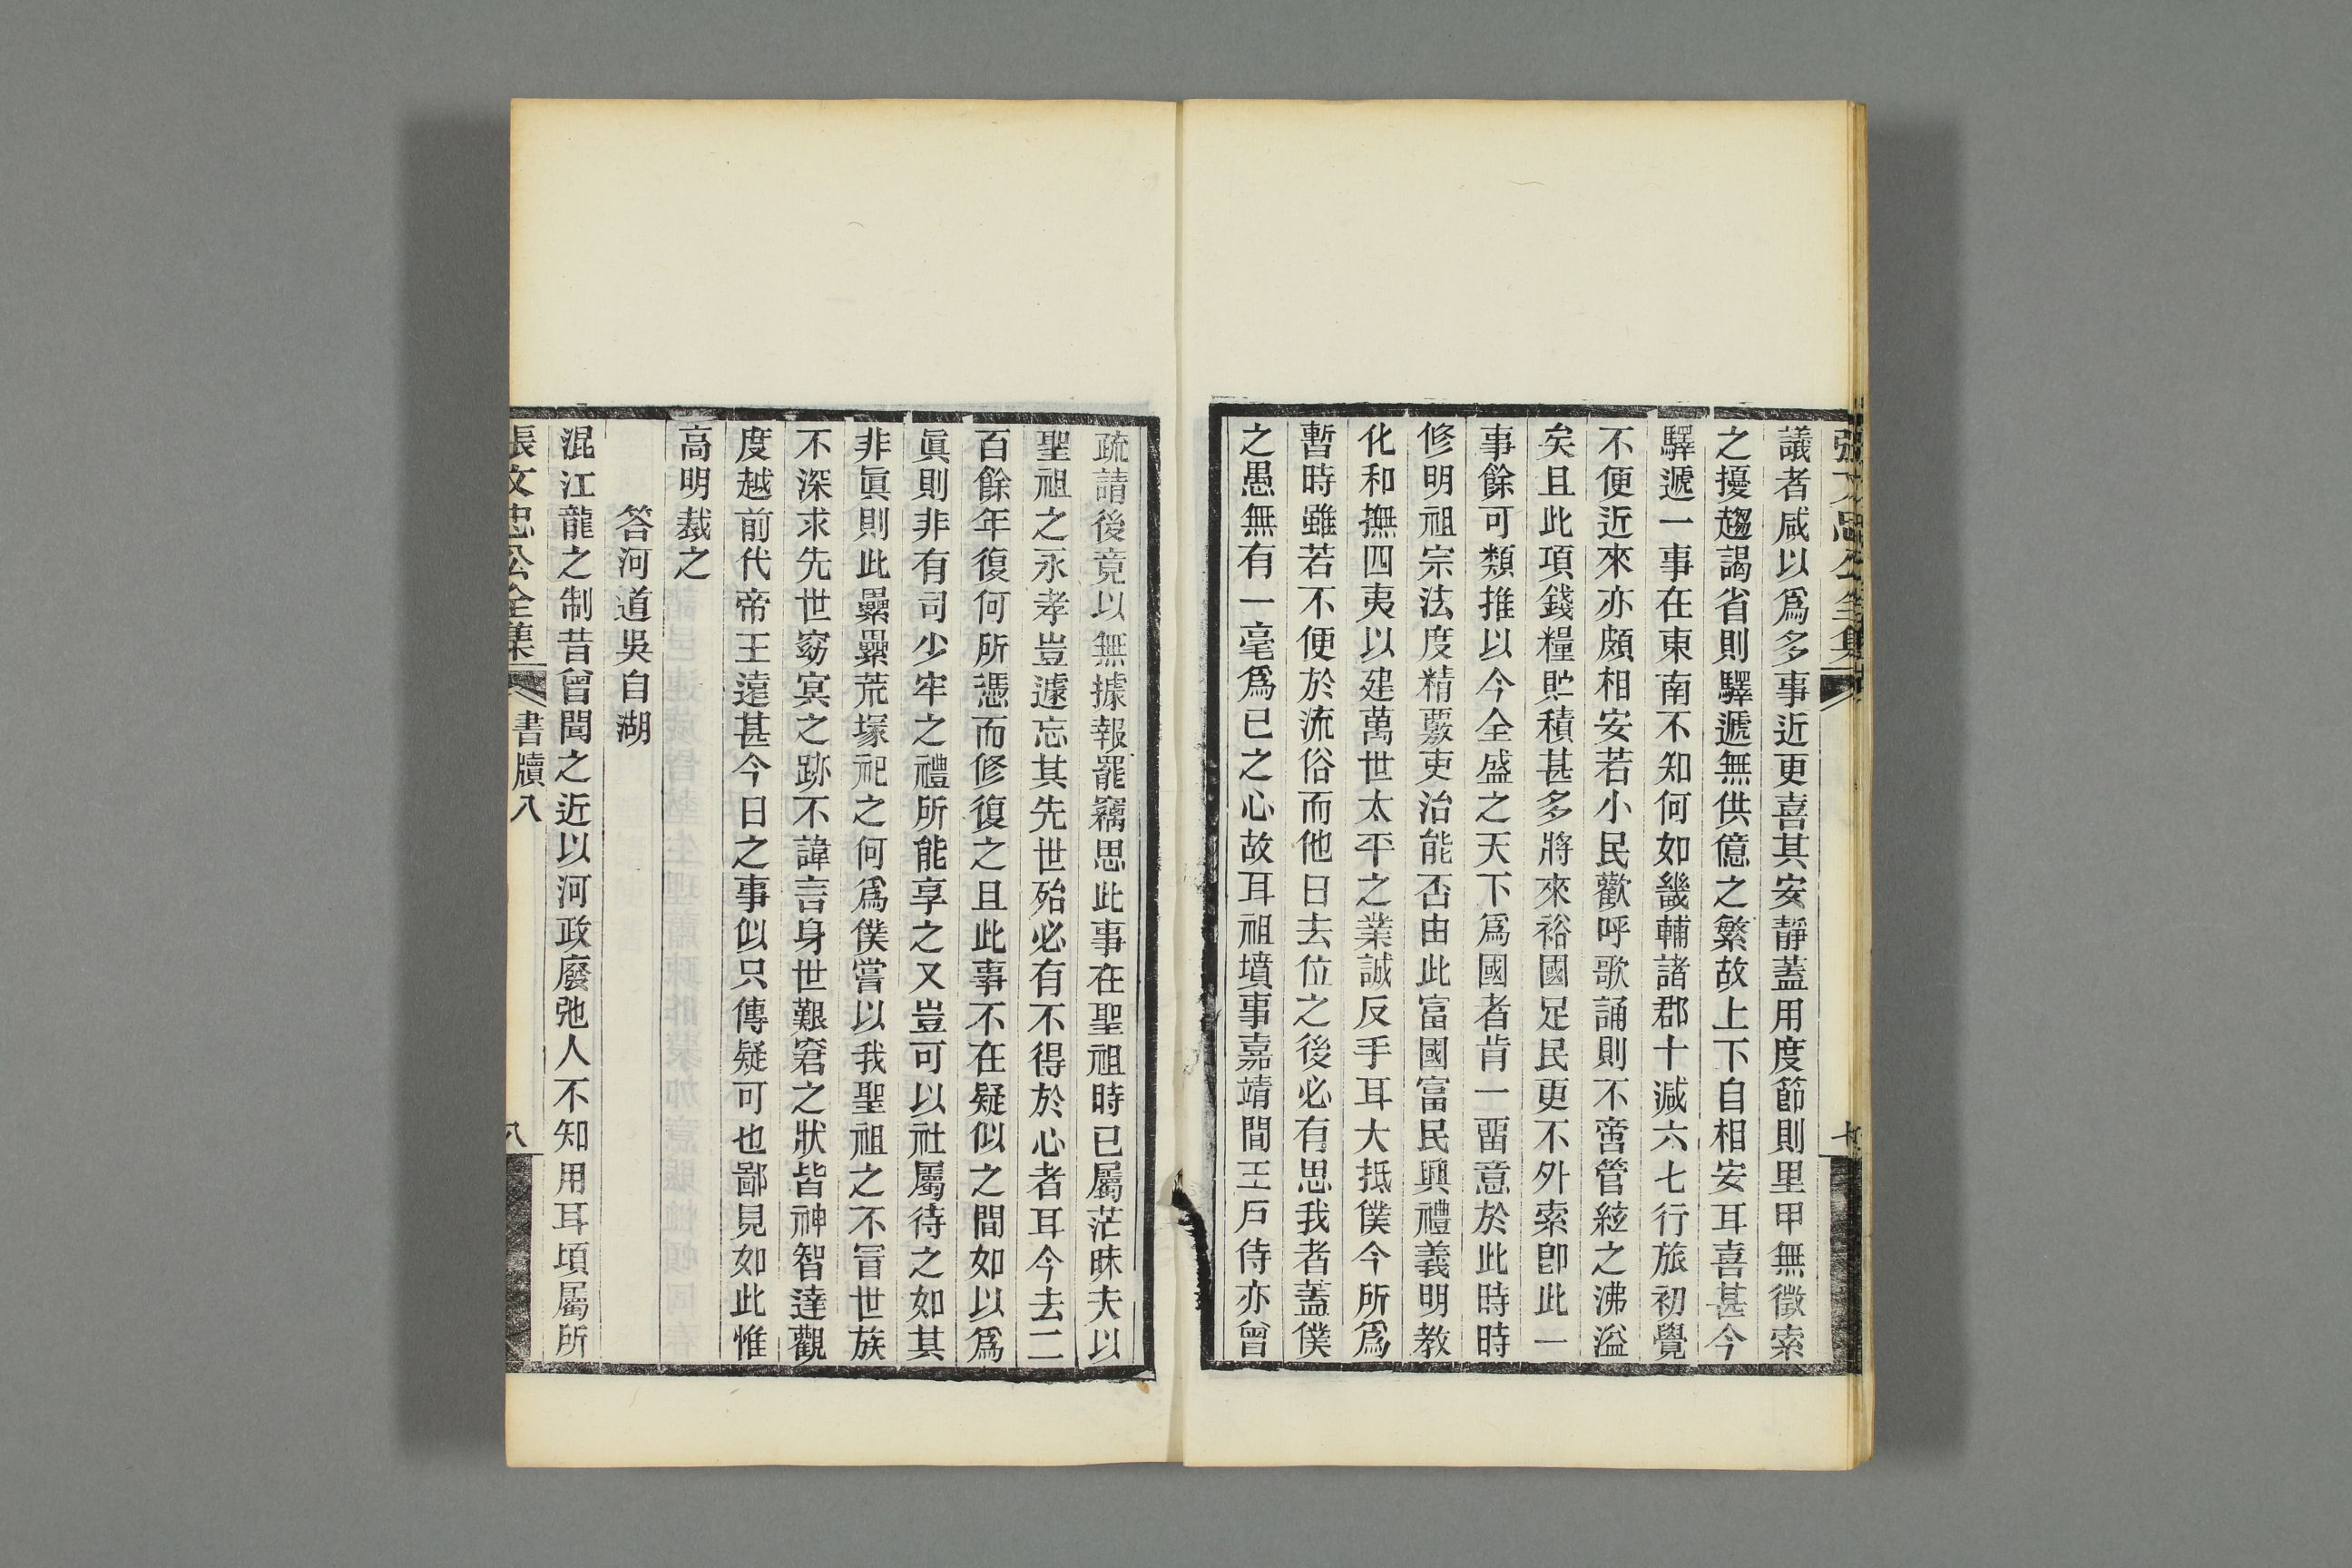 議者咸以爲多事近更喜其安靜蓋用度節則里甲無徵索
之擾趨謁省則驛遞無供億之繁故上下自相安耳喜甚今
驛遞一事在東南不知何如畿輔諸郡十減六七行旅初覺
不便近來亦頗相安若小民歡呼歌誦則不啻管絃之沸溢
矣且此項錢糧貯積甚多將來裕國足民更不外索卽此一
事餘可類推以今全盛之天下爲國者肯一畱意於此時時
修明祖宗法度精覈吏治能否由此富國富民興禮義明教
化和撫四夷以建萬世太平之業誠反手耳大抵僕今所爲
暫時雖若不便於流俗而他日去位之後必有思我者蓋僕
之愚無有一毫爲已之心故耳祖墳事嘉靖間王戶侍亦曾
疏請後竟以無據報罷竊思此事在聖祖時已屬茫昧夫以
聖祖之永孝豈遽忘其先世殆必有不得於心者耳今去二
百餘年復何所憑而修復之且此事不在疑似之間如以爲
眞則非有司少牢之禮所能享之又豈可以社屬待之如其
非眞則此纍纍荒塚祀之何爲僕嘗以我聖祖之不冒世族
不深求先世窈冥之跡不諱言身世艱窘之狀皆神智達觀
度越前代帝王遠甚今日之事似只傳疑可也鄙見如此惟
高明裁之
答河道吳自湖
混江龍之制昔曾聞之近以河政廢弛人不知用耳頃屬所
張文忠公全集
書牘八
八